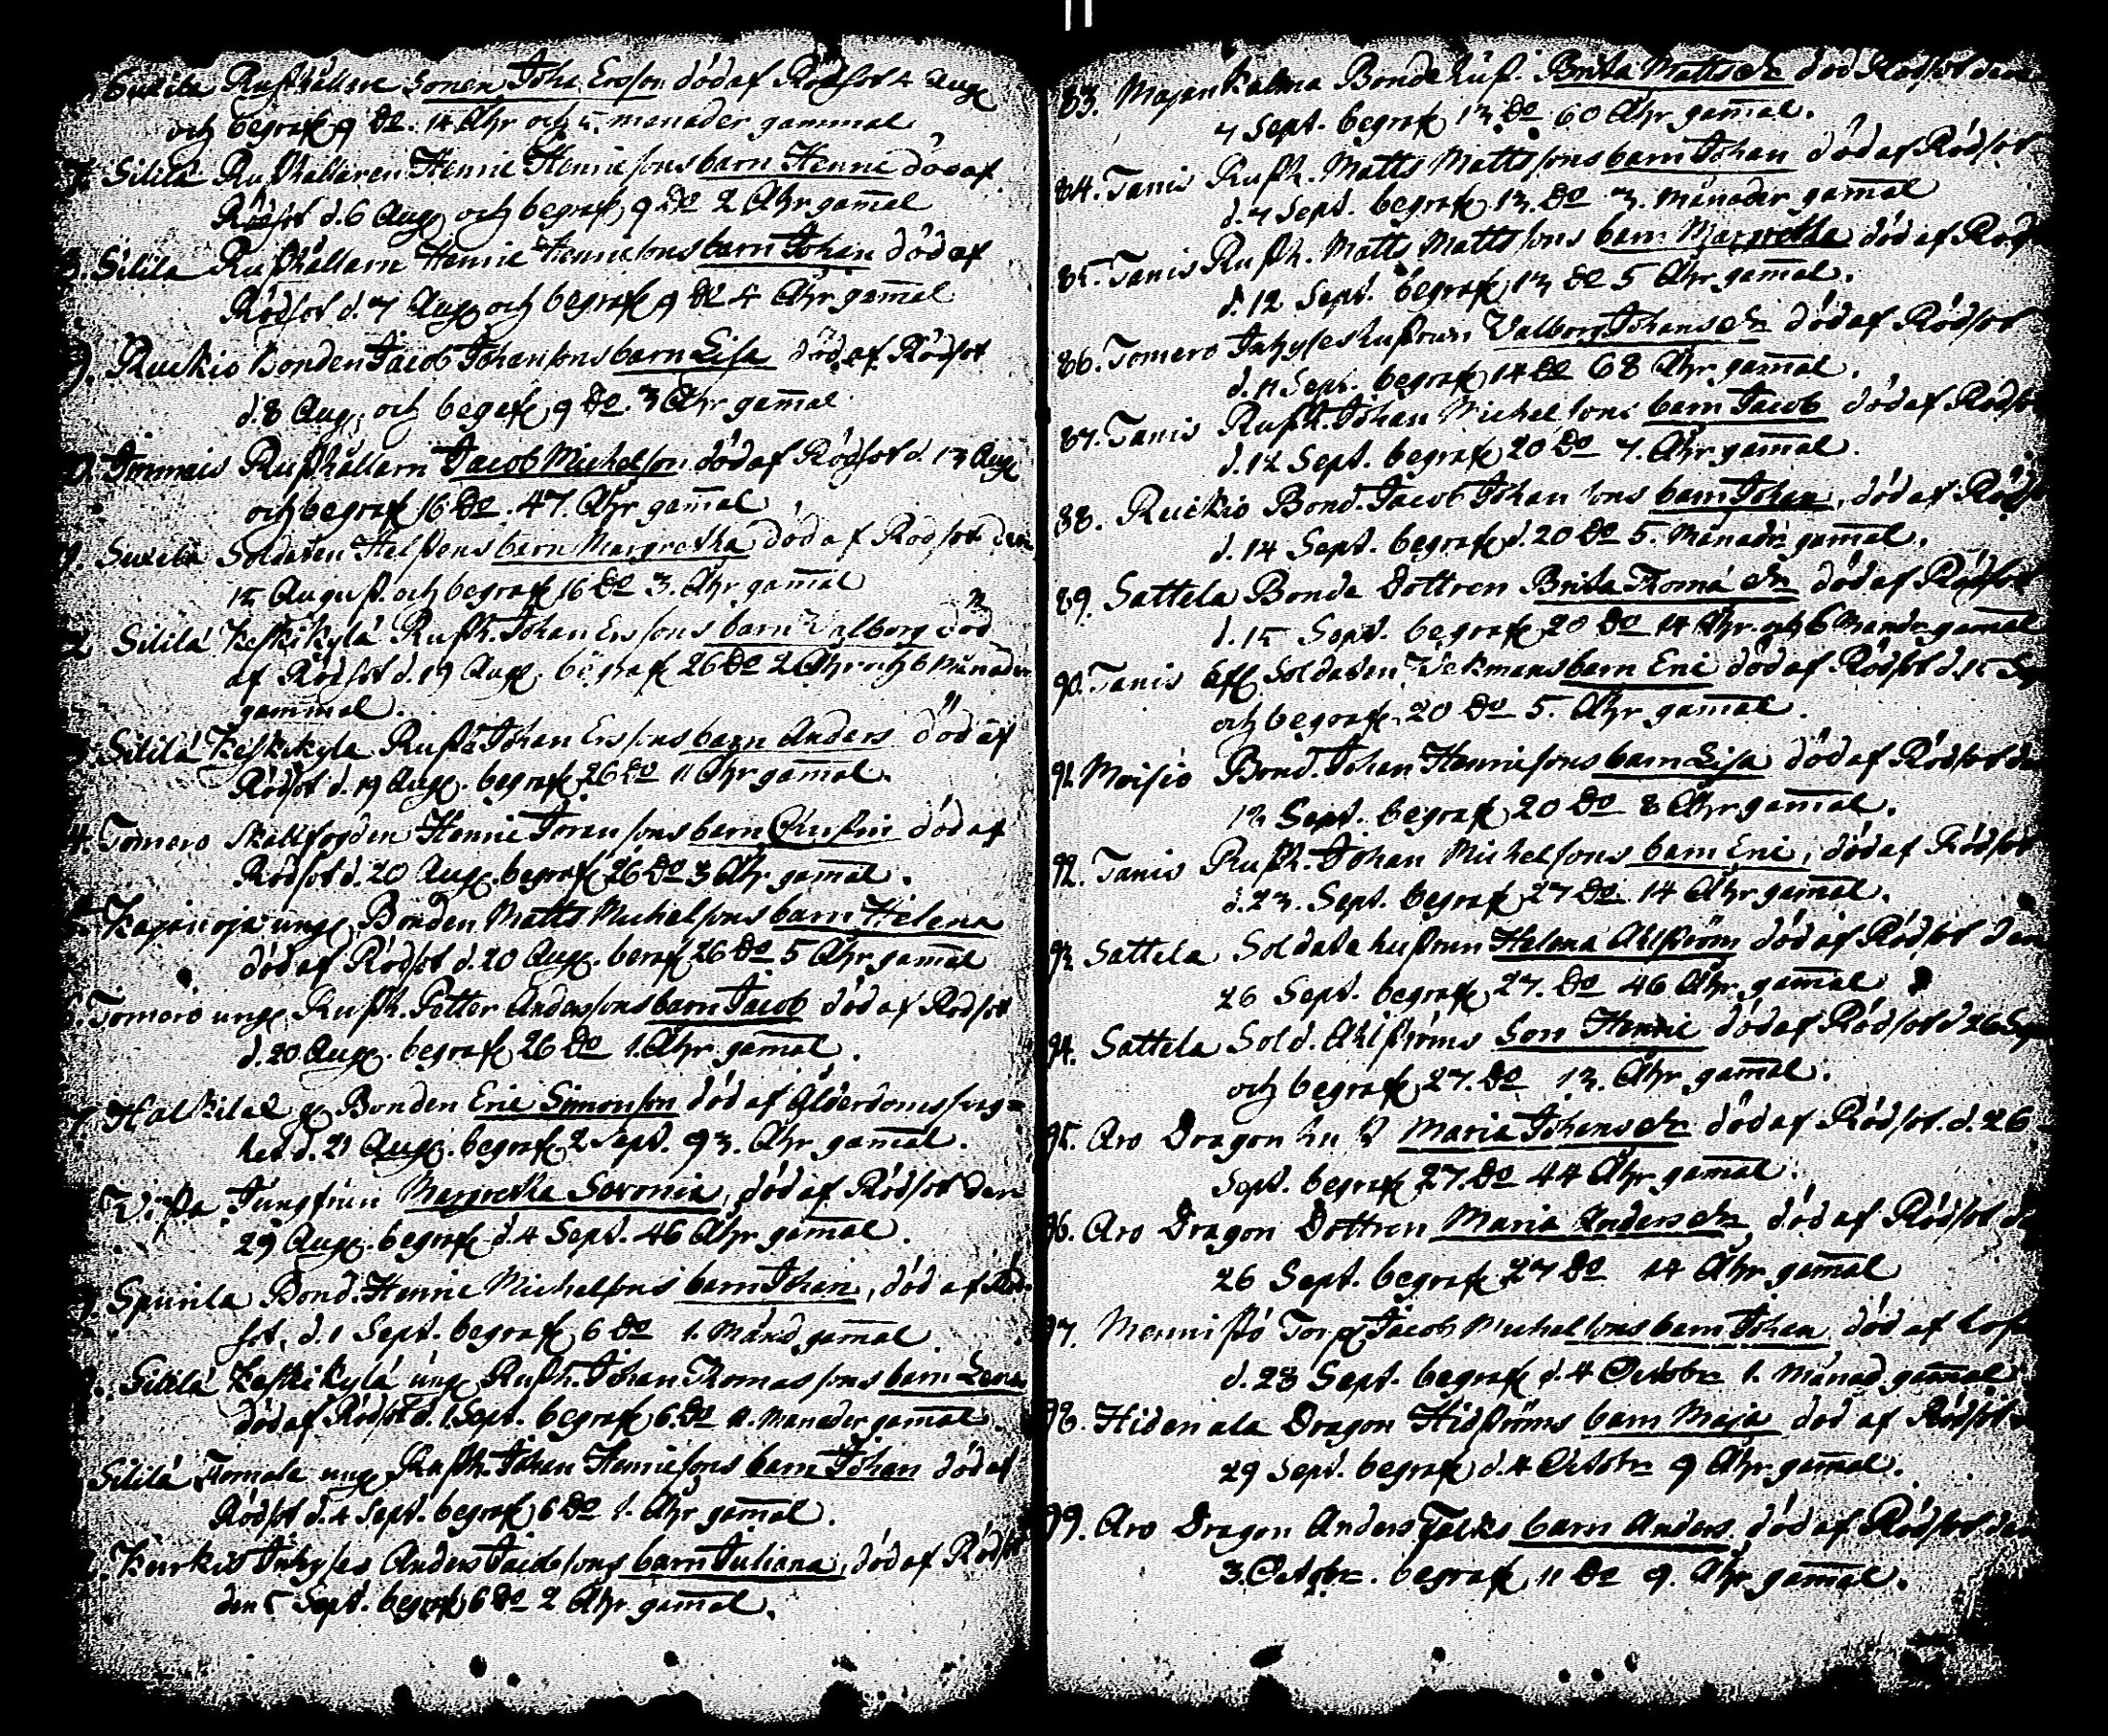 Suxela Rusthållare Sonen Joha Ersson död af Rödsot 4 Aug
och begrafn 9 Do. 14 Åhr och 5. månader gammal
Sililä Rusthållaren Henric Henricsons barn Henric död af
Rödsot d. 6 Aug och begrafn 9 Do 2 Åhr gamal
Sililä Rusthållarn Henric Henricsons barn Johan död af
Rödsot d. 7 Aug och begrafn 9 Do 4 Åhr gamal
9. Ruckio bonden Jacob Johansons barn Lisa död af Rödsot
d. 8 Aug. och begrafn 9 Do. 3 Åhr gamal
Rusthållarn Jacob Michelson död af Rödsot d. 13 Aug
och begrafn 16 Do. 47. Åhr gamal
Suxela Soldaten barn Margretha död af Rödsot den
15 August och begrafn 16 Do 3. Åhr gamal
2 Sililä Keskikylä Rusth. Johan Erssons barn Valborg död
af Rödsot d. 19 Aug. begrafn 26 Do 2 Åhr och 6 månader
gammal.
Sililä Keskikyla Rusth Johan Erssons barn Anders död af
Rödsot d. 19 Aug. begrafn 26 Do 11 Åhr gamal.
4. Tomero Skallfogden Henric Joransons barn Christin död af
Rödsot d. 20 Aug. begrafn 26 Do 3 Åhr gamal.
Kajanoja ung Bonden Matts Michelsons barn Helena
död af Rödsot d. 20 Aug. berafn 26 Do 5 Åhr gamal
Tomero ung Rusth. Petter Anderssons barn Jacob död af Rödsot
d. 20 Aug. begrafn 26 Do 1. Åhr gamal.
7 g Bonden Eric Simonson död af Ålderdoms swag=
het d. 21 Aug. begrafn 2 Sept. 93. Åhr gamal.
Jungfrun Margretha Savonia, död af Rödsot den
29 Aug. begrafn d. 4 Sept. 46 Åhr gamal.
Spurila Bond. Henric Michelsons barn Johan, död af Röd-
sot, d. 1 Sept. begrafn 6 Do 1. Månd gamal
Sililä Keskikylä ung Rusth. Johan Thomassons barn Lena
död af Rödsot d. 1. Sept. begrafn 6. Do 11. Månader gamal
Sililä Tomola ung Rusth. Johan Henricsons barn Johan död af
Rödsot d. 4 Sept. begrafn 6 Do 1. Åhr gamal.
Kurkio Inhyses Anders Jacobsons barn Juliana, död af Rödsot
den 5 Sept. begrafn 6 Do 2 Åhr gamal.
83. Majankalma Bonde hust. Brita Matts dr död Rödsot den
7 Sept. begrafn 13 Do 60 Åhr gamal.
84. Tanis Rusth. Matts Mattssons barn Johan död af Rödsot
d. 7 Sept. begrafn 13. Do 3. månader gamal
85. Tanis Rusth. Matts Mattssons barn Margretha död af Röds
d. 12 Sept. begrafn 13 Do 5 Åhr gamal.
86. Tomero Inhyses hustrun Valborg Johans dr död af Rödsot
d. 11 Sept. begrafn 14 Do 68 Åhr gamal.
87. Tanis Rusth. Johan Michelsons barn Jacob död af Rödso
d. 12 Sept. begrafn 20 Do 7. Åhr gamal.
88. Ruckio Bond. Jacob Johansons barn Johan, död af Rödso
d. 14 Sept. begrafn d. 20 Do 5. Månadr gamal.
89. Sattela Bonde Dottren Brita Thomä dr död af Rödsot
d. 15 Sept. begrafn 20 Do 14 Åhr och 6 Mandr gamal
90. Tanis Soldaten Wekmans barn Eric död af Rödsot d. 15 Sep
och begrafn 20 Do 5. Åhr gamal.
91. Moisio Bond. Johan Henricsons barn Lisa död af Rödsot den
Sept. begrafn 20 Do 8 Åhr gamal.
92. Tanis Rusth. Johan Michelsons barn Eric, död af Rödsot
d. 23. Sept. begrafn 27 Do. 14 Åhr gamal.
93 Sattela Soldate hustrun Helena Ahlström död af Rödsot den
26 Sept. begrafn 27. Do 46 Åhr gamal
94. Sattela Sold. Ahlströms Son Henric död af Rödsot d 26 Sep
och begrafn 27. Do 13. Åhr gamal.
95. Aro Dragon Maria Johans dr död af Rödsot. d. 26
Sept. begrafn 27. Do 44 Åhr gamal.
96. Aro Dragon Dottren Maria Anders dr död af Rödsot d
26 Sept. begrafn 27 Do 14 Åhr gamal
97. Torp Jacob Michelsons barn Johan död af
d. 28 Sept. begrafn d. 4 Octobr 1. Månad gamal
98. Hidenala Dragon Hidströms barn Maja död af Rödsot
29 Sept. begrafn d. 4 Octobr 9 Åhr gamal.
99. Aro Dragon Anders Falks barn Anders, död af Rödsot den
3. Octobr. begrafn 11 Do 9. Åhr gamal.